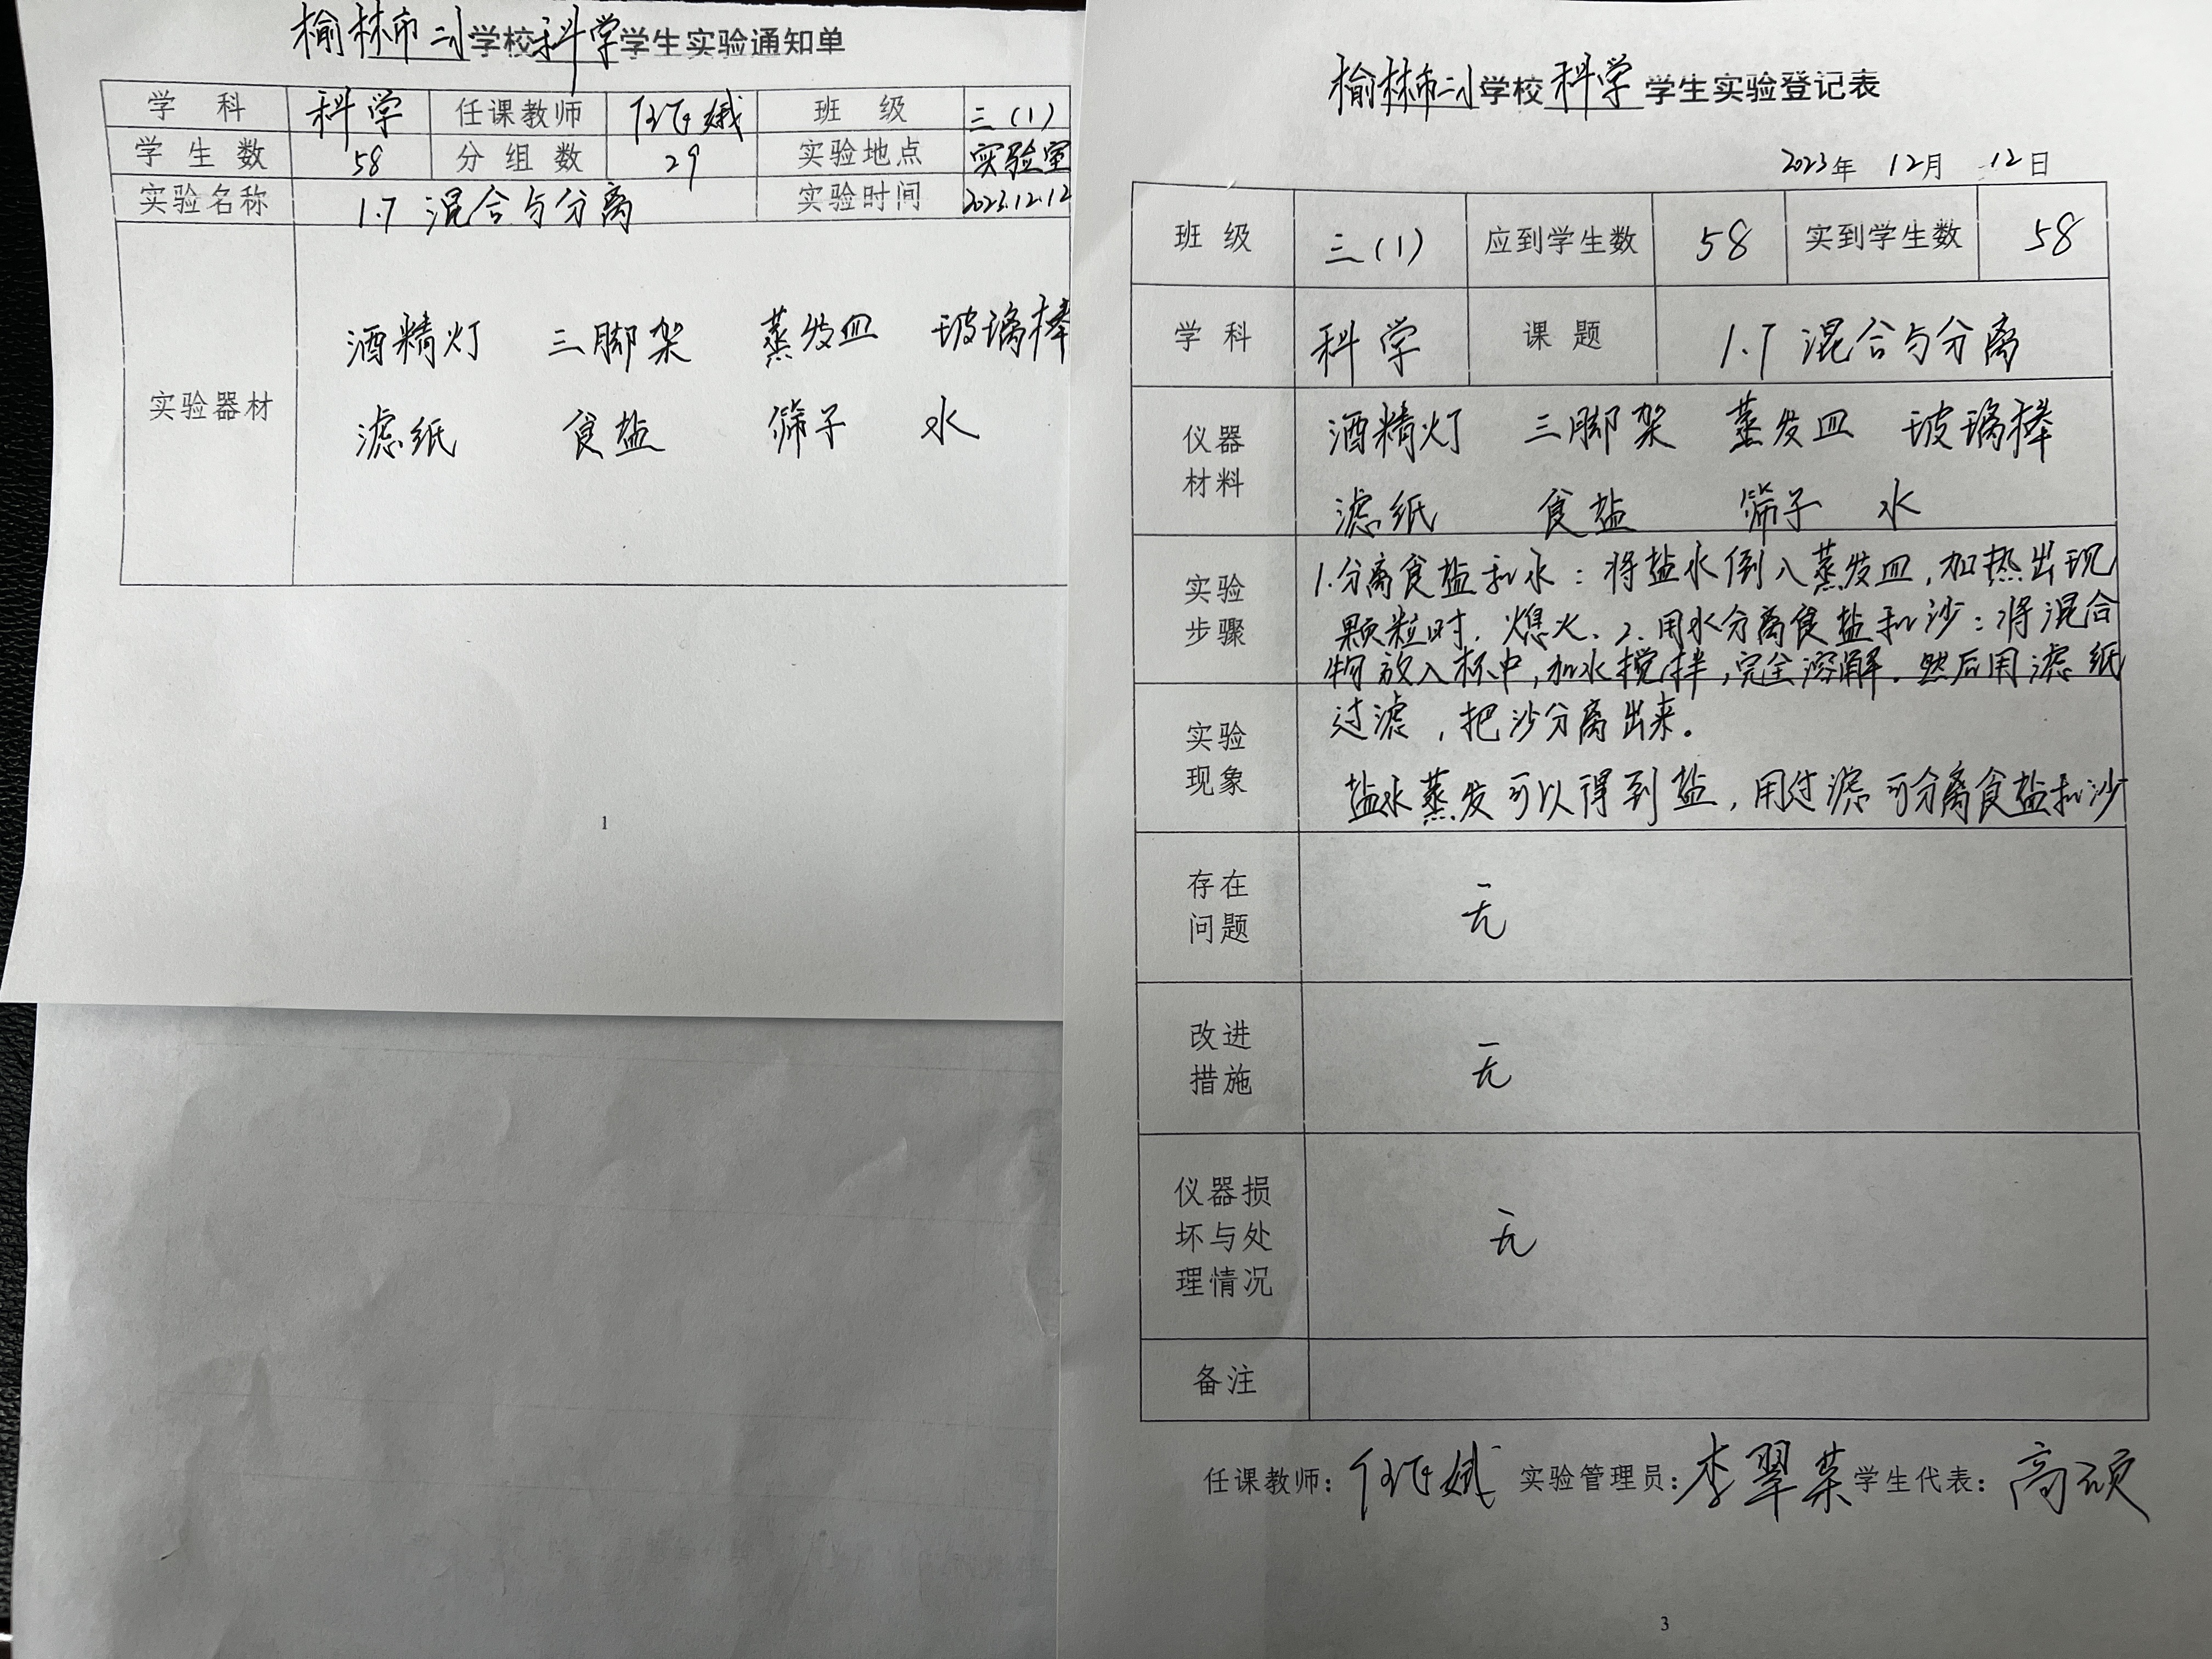 榆林市二小学校科学学生实验通知单
学 科 科学 任课教师 任飞娥 班 级 三（1）
学 生 数 58 分 组 数 29 实验地点 实验室
实验名称 1.7 混合与分离 实验时间 2023.12.12
实验器材
酒精灯 三脚架 蒸发皿 玻璃棒
滤纸 食盐 筛子 水
1
榆林市二小学校科学学生实验登记表
2023年 12月 12日
班 级 三（1） 应到学生数 58 实到学生数 58
学 科 科学 课 题 1.7 混合与分离
仪器
材料
酒精灯 三脚架 蒸发皿 玻璃棒
滤纸 食盐 筛子 水
实验
步骤
1.分离食盐和水：将盐水倒入蒸发皿，加热出现
颗粒时，熄火、2、用水分离食盐和沙：将混合
物放入杯中，加水搅拌，完全溶解。然后用滤纸
过滤，把沙分离出来。
实验
现象
盐水蒸发可以得到盐，用过滤可分离食盐和沙
存在
问题
无
改进
措施
无
仪器损
坏与处
理情况
无
备注
任课教师：任飞娥 实验管理员：李翠荣 学生代表：高硕
3